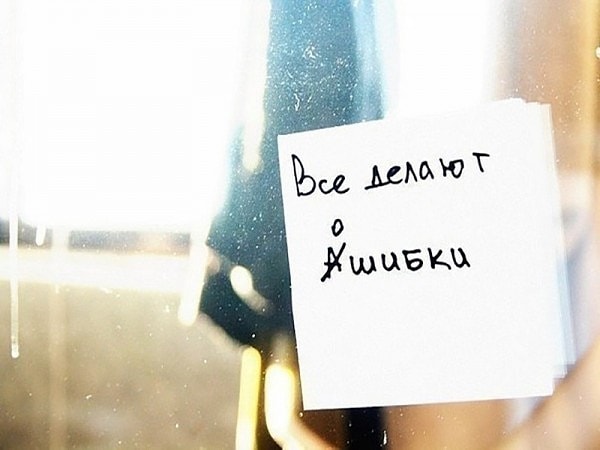 Все делают
о
Ашибки